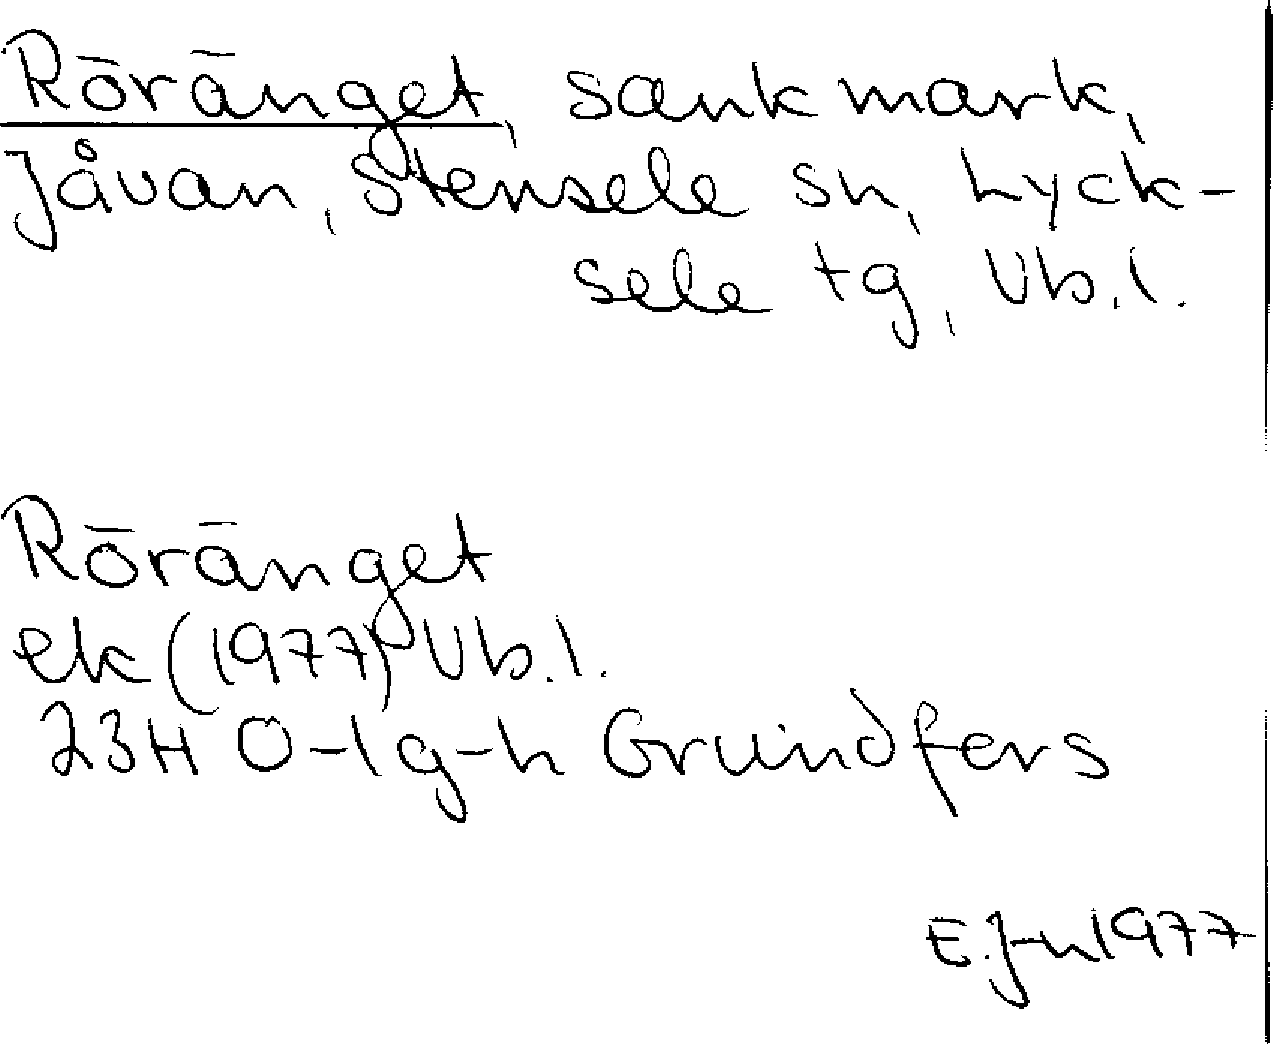 Röränget, sankmark,
Jåvan, Stensele sn, Lyck-
sele tg, Vb.l.
Röränget
ek (1977) Vb.l.
23H 0-1g-h Grundfors
E.J-n 1977